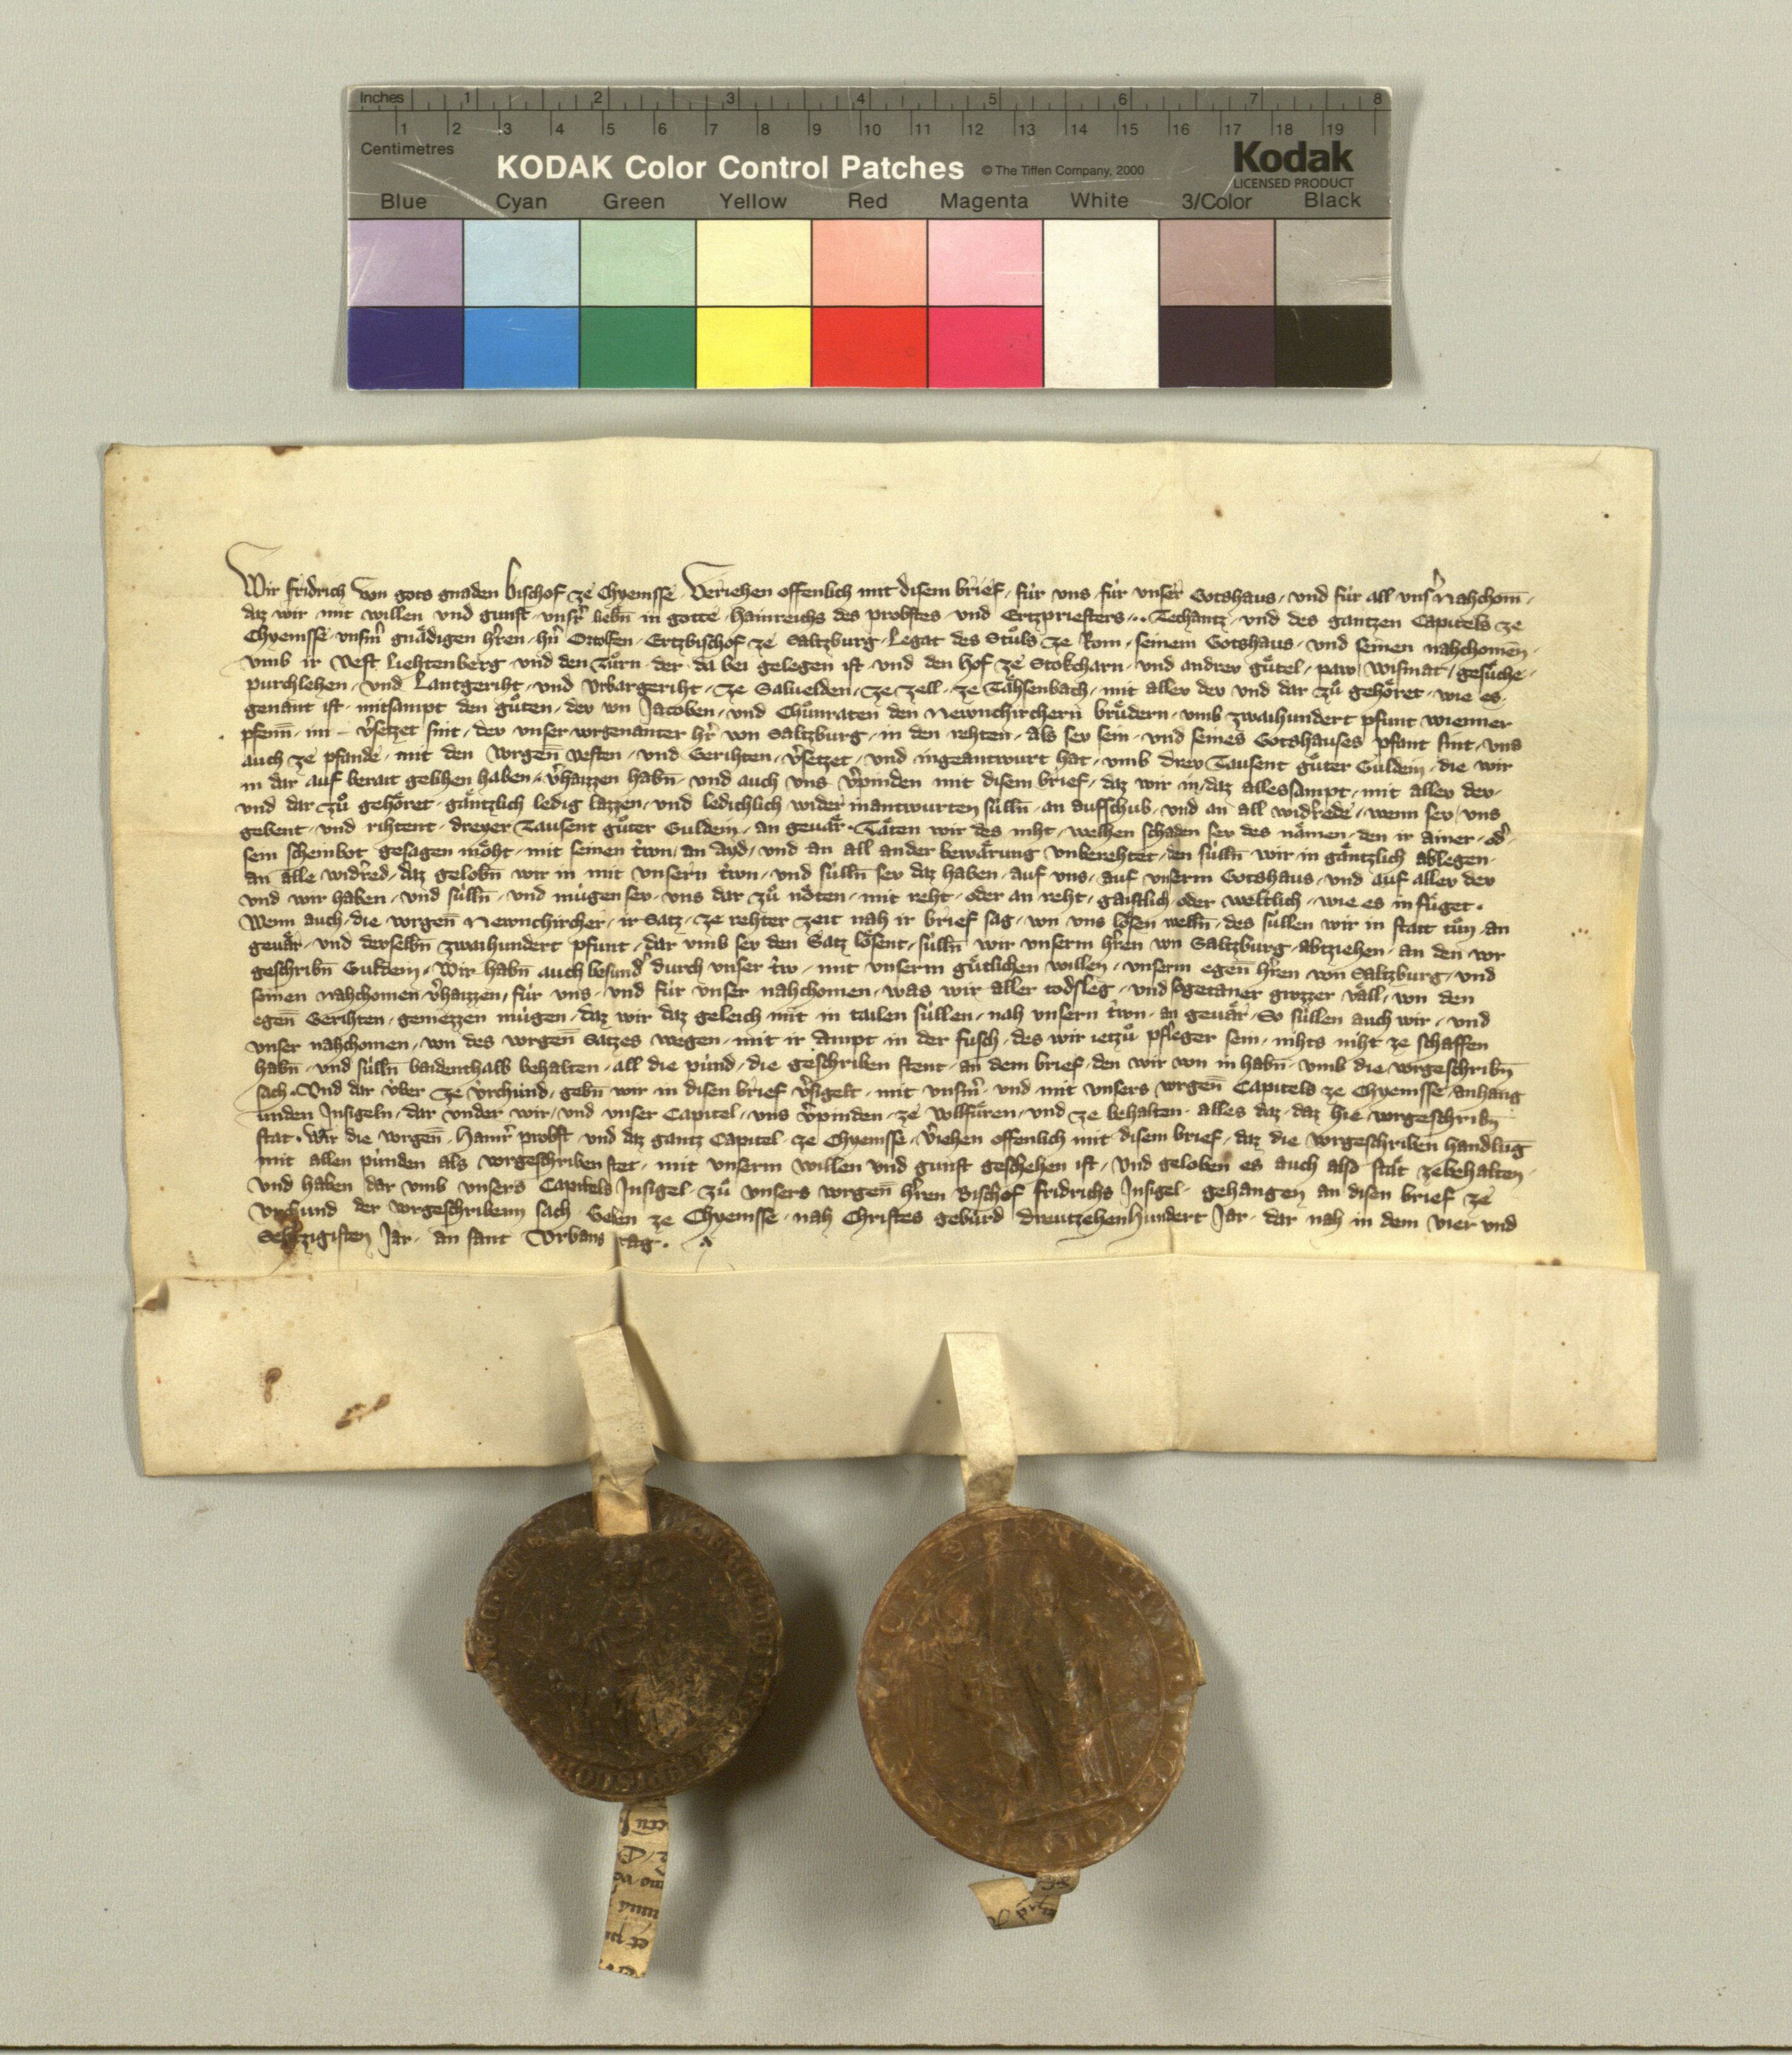 Inches 1 2 3 4 5 6 7 8
1 2 3 4 5 6 7 8 9 10 11 12 13 14 15 16 17 18 19
Centimetres
KODAK Color Control Patches © The Tiffen Company, 2000
Kodak
LICENSED PRODUCT
Blue Cyan Green Yellow Red Magenta White 3/Color Black
Wir fridrich von gots gnaden Bischof ze Chyemsse Veriehen offenlich mit disem brief, für uns für unser Gotshaus, und für all unsr̄ Nahchom̄,
daz wir mit willen und gunst unsr̄ lieb̄n in gotte, Hainreichs des probstes und Ertzpriesters .. Techantz und des gantzen Capitels ze
Chyemsse, unserm̄ gnädigen h̄ren, hn̄ Ortolfen, Ertzbischof ze Saltzburg, Legat des Stůls ze Rom, seinem Gotshaus, und seinen nahchomen,
umb ir vest Liehtenberg, und den Tůrn, der da bei gelegen ist, und den hof ze Stokcharn, und andrev gůtel, paw, wismat, gesůche,
purchlehen, und Lantgeriht, und Urbargeriht, ze Salvelden, ze zell, ze Tähsenbach, mit allev dev und dar zů gehöret, wie es
genant ist, mitsampt den gůten, dev von Jacoben, und Chůnraten den Newnchirchern brůdern, umb zwaihundert pfunt wienner
pfenn̄, im - v̄setzet sint, dev unser vorgenanter h̄r von Saltzburg, in den rehten, als sev sein, und seines Gotshauses pfant sint, uns
auch ze pfande, mit den vorgen̄ vesten, und Gerihten, v̄setzet, und ingeantwurt hat, umb drev Tausent gůter Guldein, die wir
in dar auf berait gelihen haben, v̄haizzen hab̄n, und auch uns v̄pinden mit disem brief, daz wir in, daz allessampt, mit allev dev,
und dar zů gehöret, gäntzlich ledig lazzen, und ledichlich wider inantwurten sülln̄, an aufschub, und an all widrede, wenn sev, uns
gebent, und rihtent, dreyer Tausent gůter Guldein, an gevär. Täten wir des niht, welhen schaden sev des nämen, den ir ainer, od̄
sein scheinbot gesagen möht, mit seinen trwn, an ayd, und an all ander bewärung unberehtet, den sülln̄ wir in gäntzlich ablegen,
an alle widred, daz gelob̄n wir in mit unsern trwn, und sülln̄ sev daz haben, auf uns, auf unserm Gotshaus, und auf allev dev
und wir haben, und sülln̄, und mügen sev, uns dar zů nöten, mit reht, oder an reht, gaistlich oder weltlich, wie es in füget.
Wenn auch, die vorgen̄ Newnchircher, ir Satz, ze rehter zeit nah ir brief sag, von uns lösen welln̄, des süllen wir in statt tůn, an
gevär, und derselb̄n zwaihundert pfunt, dar umb sev den Satz lösent, sülln̄ wir unserm h̄ren von Saltzburg, abziehen, an den vor
geschrib̄n Guldein, Wir hab̄n auch besund̄ durch unser trw, mit unserm gůtlichen willen, unserm egen̄ h̄ren von Saltzburg, und
seinen nahchomen, v̄haizzen, für uns, und für unser nahchomen, was wir aller todsleg, und sogetaner grozzer väll, von den
egen̄ Gerihten, geniezzen mügen, daz wir daz geleich mit in tailen süllen, nah unsern trwn, an gevär, So süllen auch wir, und
unser nahchomen, von des vorgen̄ Satzes wegen, mit ir Ampt in der fusch, des wir ietzů pfleger sein, nihts niht ze schaffen
hab̄n, und sülln̄ baidenthalb behalten, all die pünd, die geschriben stent, an dem brief, den wir von in hab̄n, umb die vorgeschrib̄n
sach. Und dar über ze ürchünd, geb̄n wir in disen brief v̄sigelt, mit unserm̄, und mit unsers vorgen̄ Capitels ze Chyemsse, anhang
unden Insigeln, dar under wir, und unser Capitel, uns v̄pinden, ze vollfüren, und ze behalten, alles daz, daz hie vorgeschrib̄n
stat. Wir die vorgen̄, Hainr̄ probst, und daz gantz Capitel, ze Chyemsse, v̄iehen offenlich mit disem brief, daz die vorgeschriben handlūg
mit allen pünden als vorgeschriben stet, mit unserm willen und gunst geschehen ist, Und geloben es auch also stät zebehalten,
Und haben dar umb unsers Capitels Insigel, zů unsers vorgen̄ h̄ren Bischof fridrichs Insigel, gehangen an disen brief ze
Urchund der vorgeschribenn sach, Geben ze Chyemsse, nah Christes gebürd dreutzehenhundert Jar, dar nah in dem vier und
Sehtzigisten Jar, an sant Urbans tag.